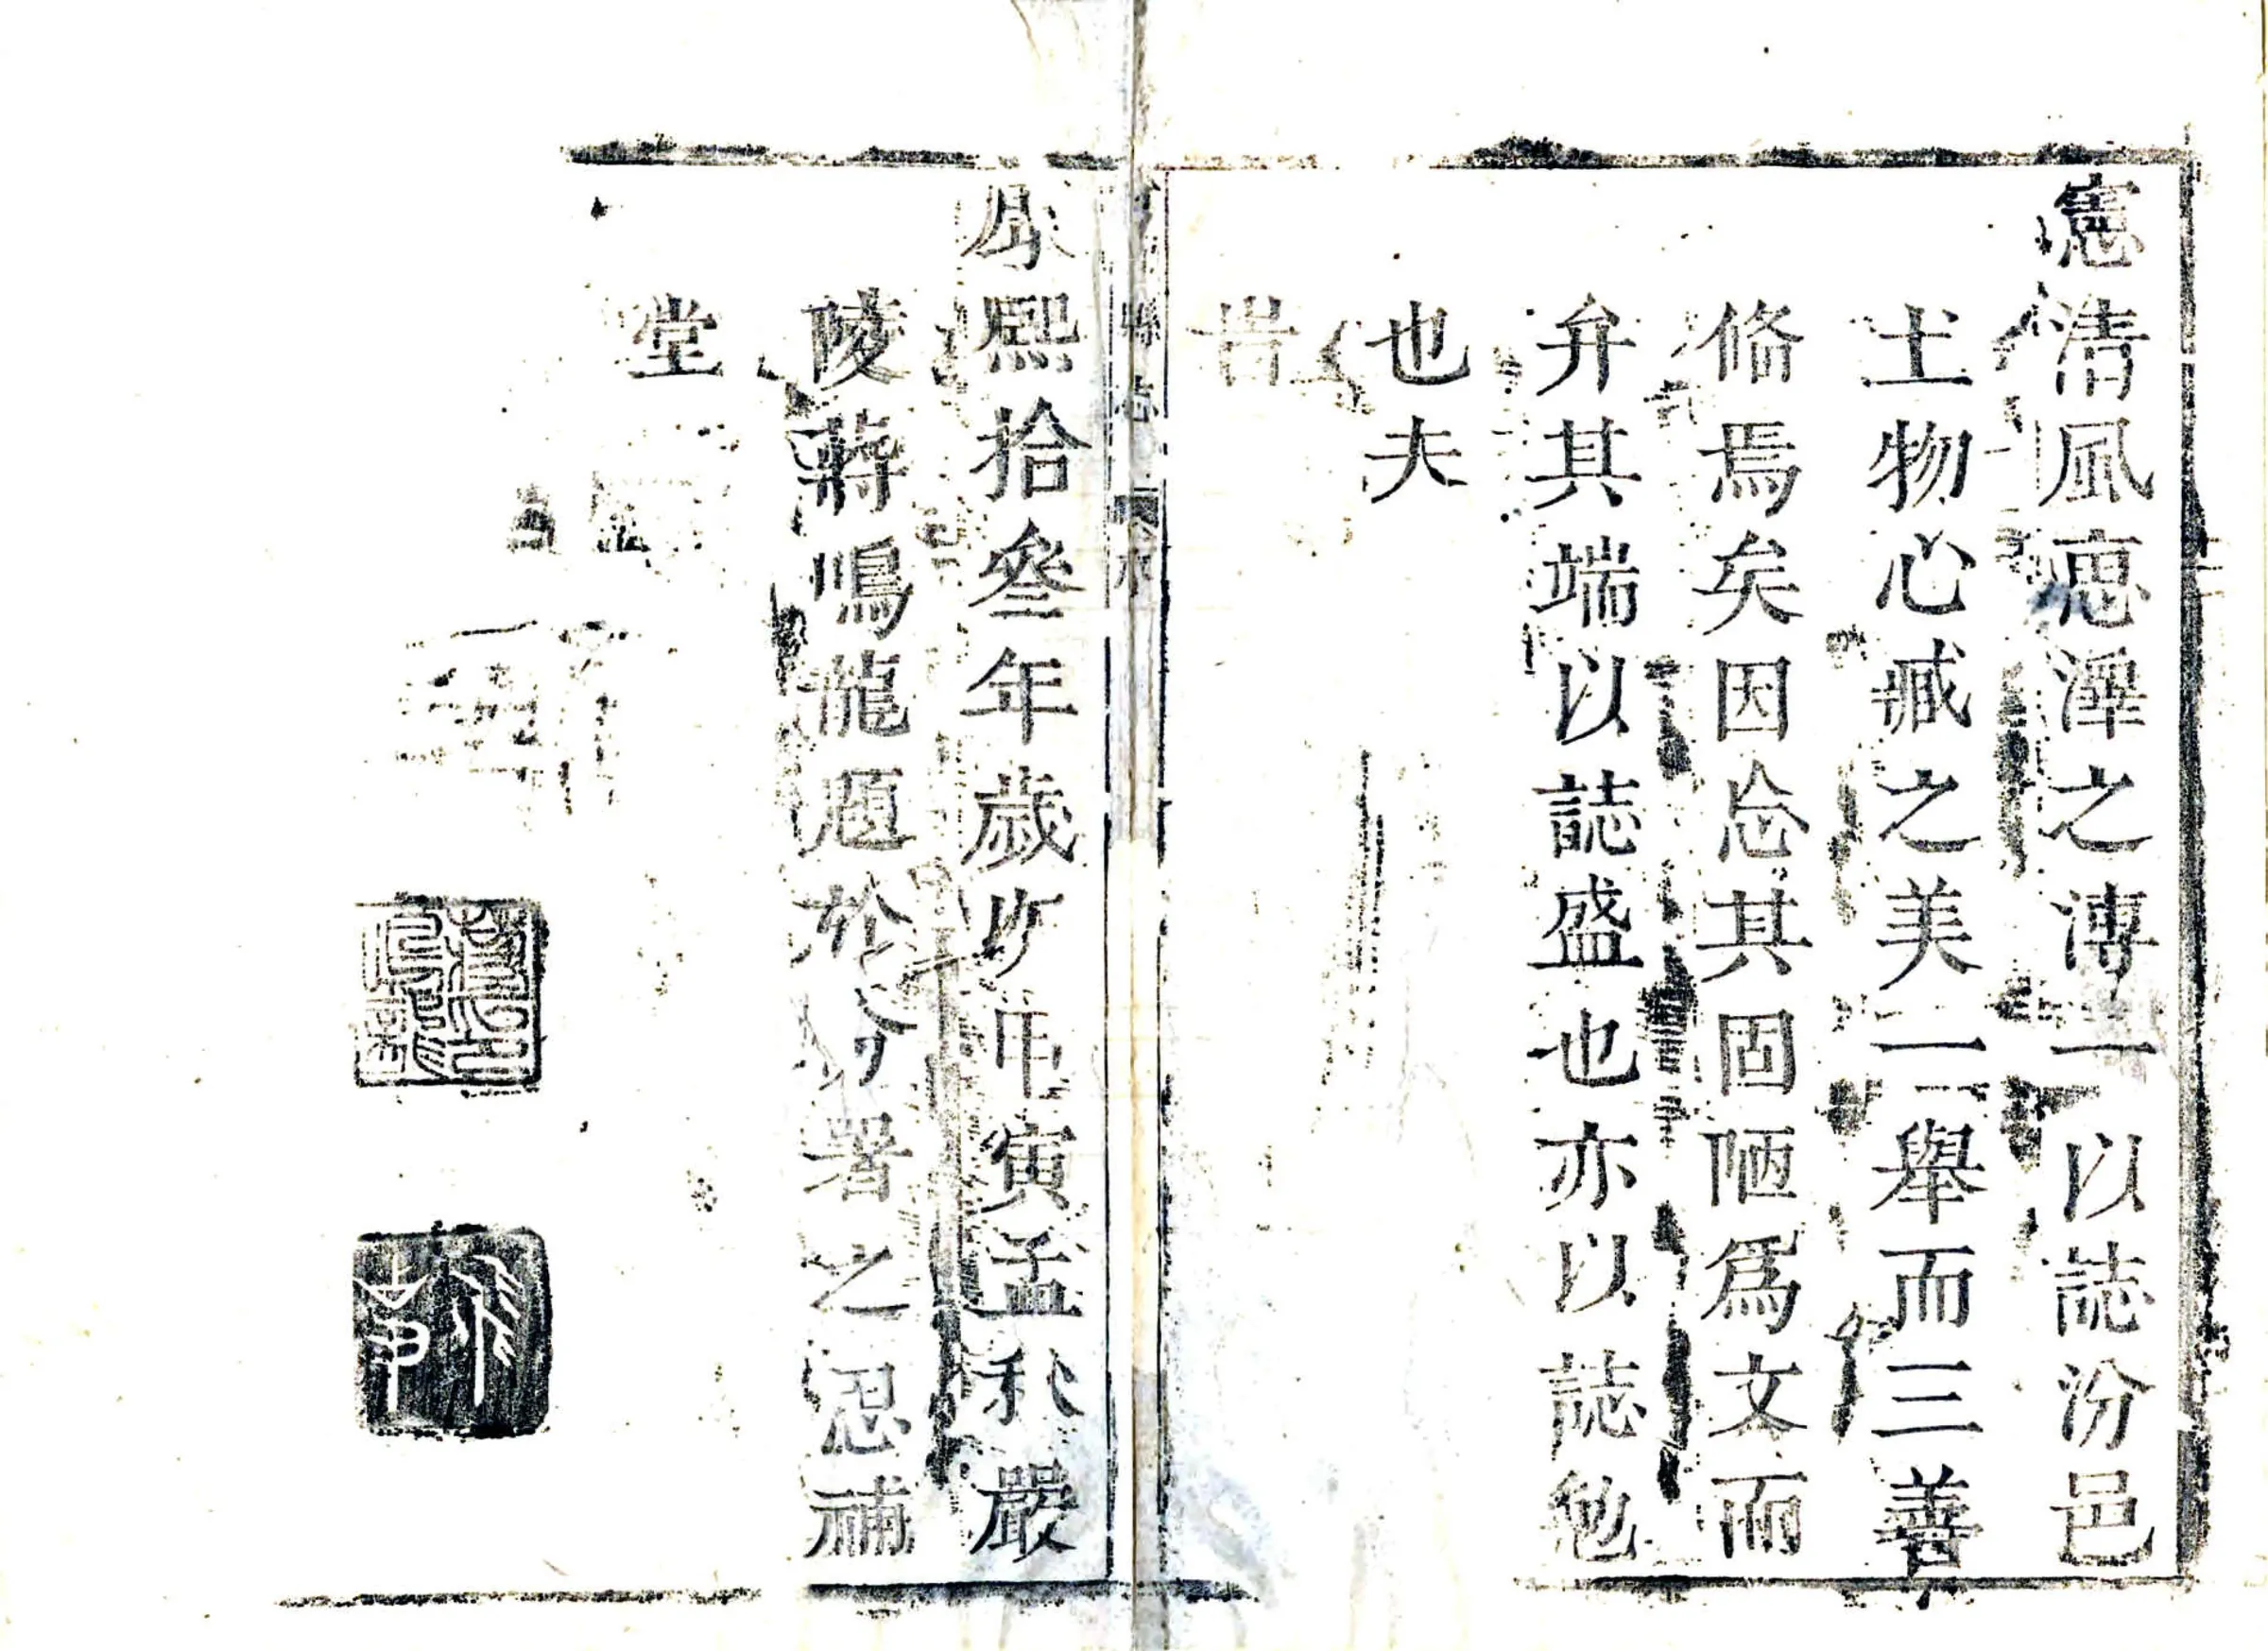 憲清風惪澤之溥一以誌汾邑
土物心臧之美一舉而三善
脩焉矣因忘其固陋爲文而
弁其端以誌盛也亦以誌勉
也夫
旹
縣志
康熙拾叄年歲次甲寅孟秋嚴
陵蔣鳴龍題於公署之忍補
堂
蔣印鳴龍